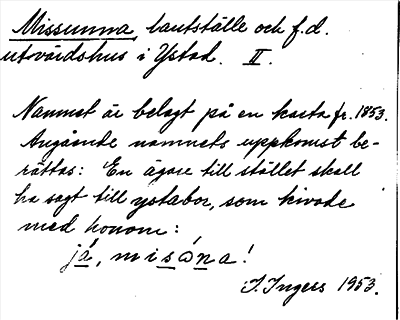 Missunna, lantställe och f.d.
utvärdshus i Ystad. II.
Namnet är belagt på en karta fr. 1853.
Angående namnets uppkomst be-
rättas: En ägare till stället skall
ha sagt till ystabor, som kivade
med honom:
já, misøna!
I. Ingers 1953.